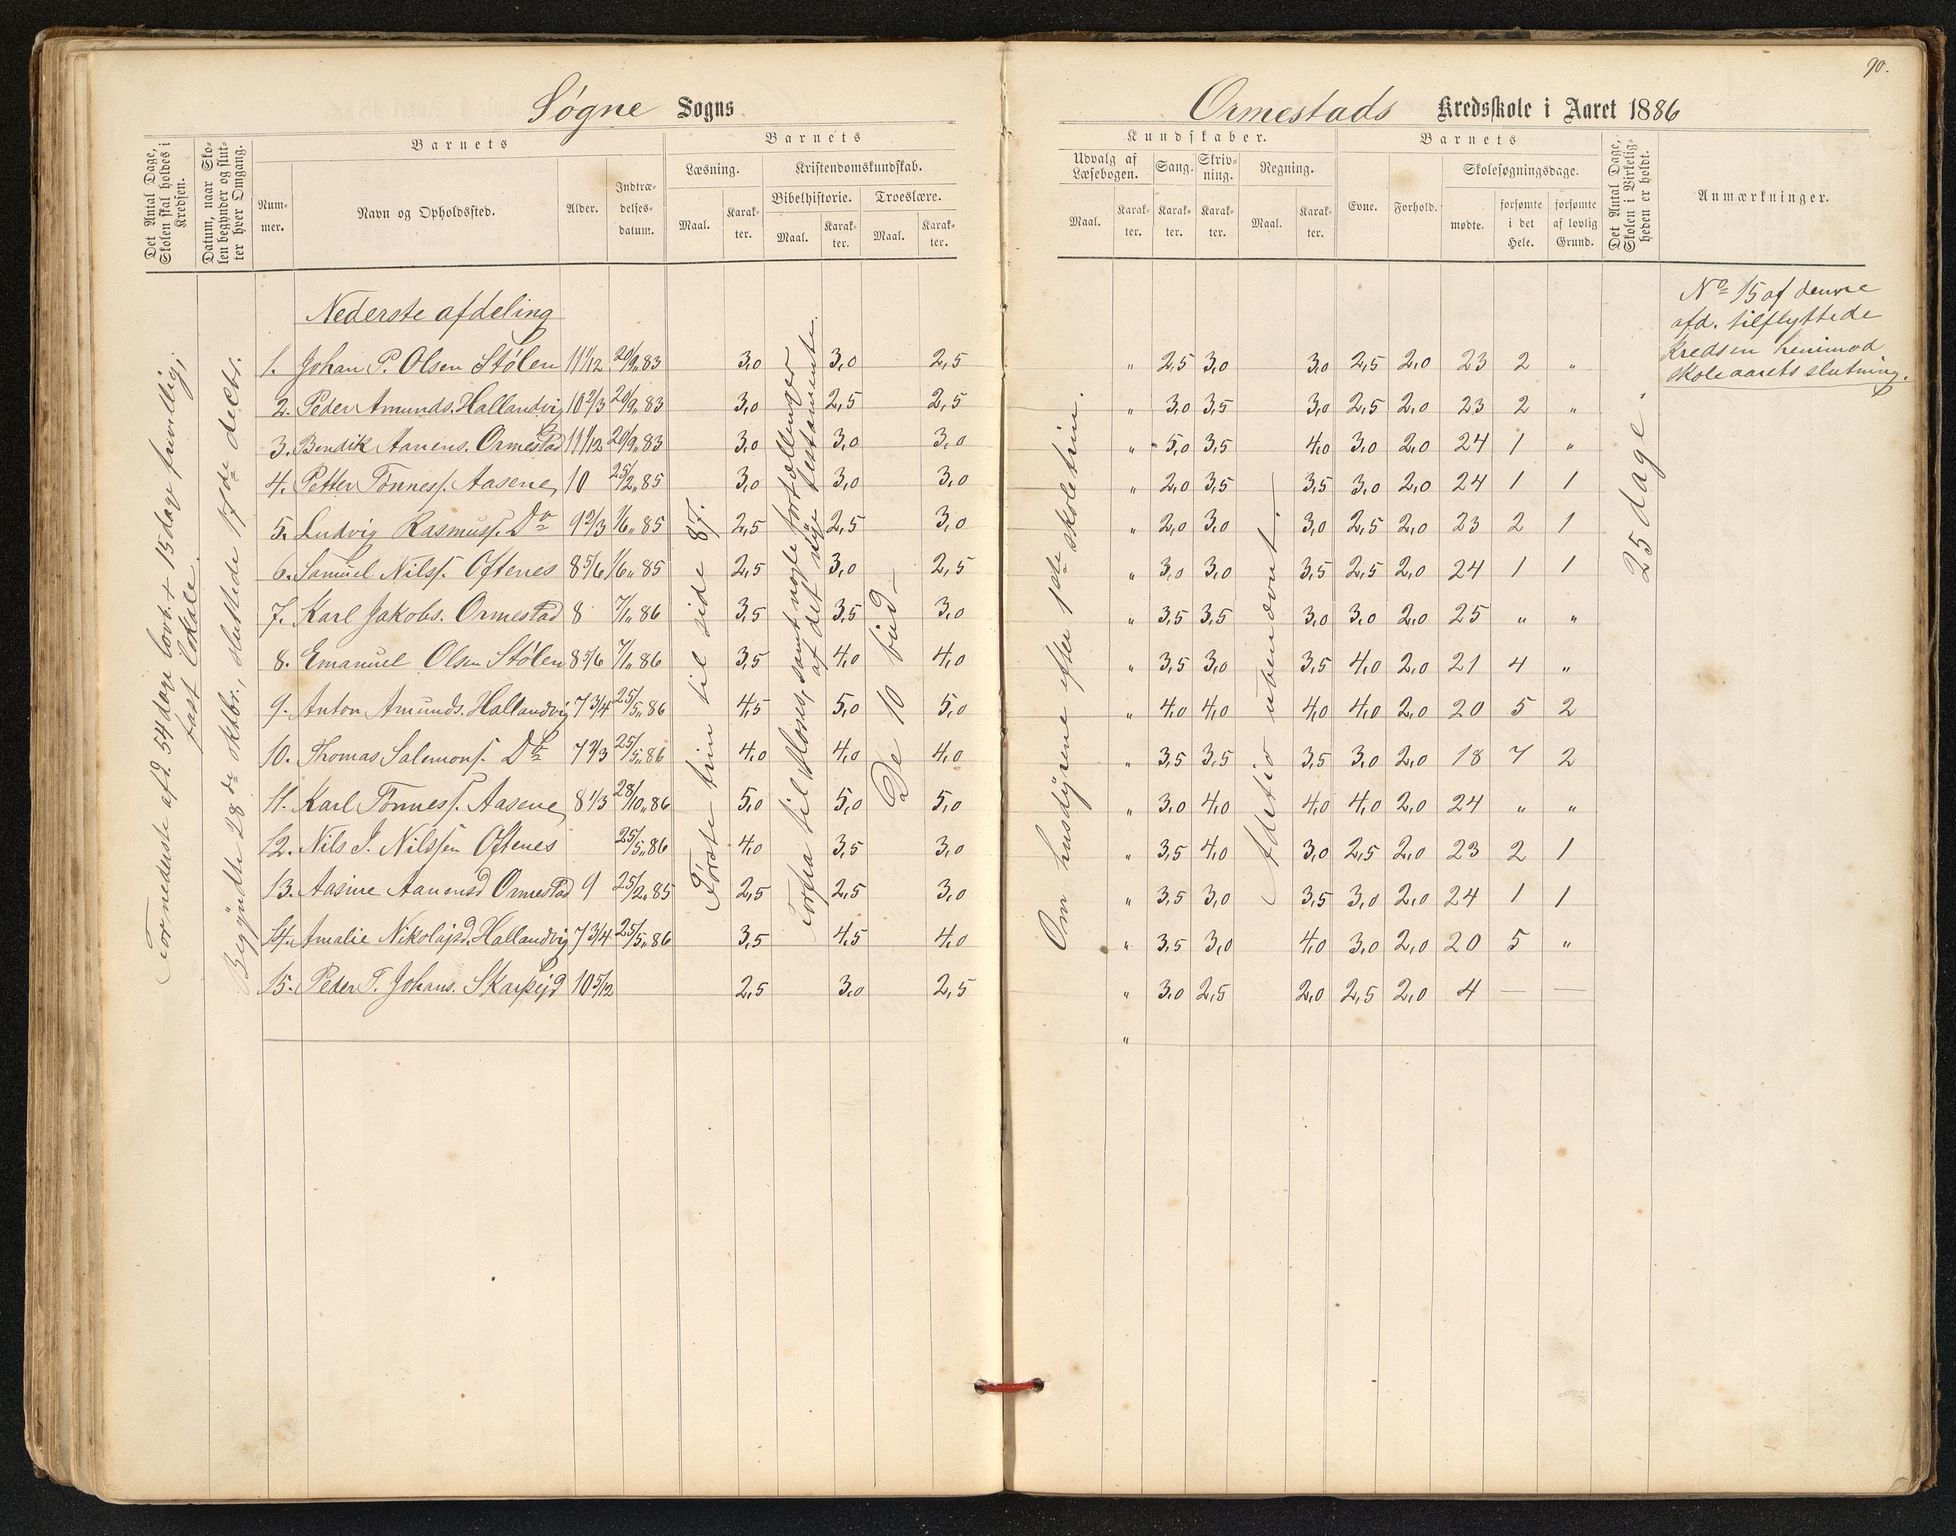 90.
Søgne Sogns
Ormestads Kredsskole i Aaret 1886
Det Antal Dage, Skolen skal holdes i Kredsen.
Datum, naar Skolen begynder og slutter hver Omgang.
Barnets
Nummer.
Navn og Opholdssted.
Alder.
Indtrædelsesdatum.
Barnets
Læsning.
Maal.
Karakter.
Kristendomskundskab.
Bibelhistorie.
Maal.
Karakter.
Troeslære.
Maal.
Karakter.
Kundskaber.
Udvalg af Læsebogen.
Maal.
Karakter.
Sang.
Karakter.
Skrivning.
Karakter.
Regning.
Maal.
Karakter.
Barnets
Evne.
Forhold.
Skolesøgningsdage.
mødte.
forsømte i det Hele.
forsømte af lovlig Grund.
Det Antal Dage, Skolen i Virkeligheden er holdt.
Anmærkninger.
For nederste afd. 54 dage lovb. + 15 dage frivillig;
fast lokale.
Begyndte 28de oktbr., sluttede 17de decbr.
Nederste afdeling
1. Johan P. Olsen Stølen 11 1/12 20/9.. 83 3,0 3,0 2,5 " 2,5 3,0 3,0 2,5 2,0 23 2 "
2. Peder Amunds. Hallandvig 10 2/3 20/9.. 83 3,0 2,5 2,5 " 3,0 3,5 3,0 2,5 2,0 23 2 "
3. Bendik Aanens. Ormestad 11 1/12 20/9.. 83 3,0 3,0 3,0 " 5,0 3,5 4,0 3,0 2,0 24 1 "
4. Petter Tønness. Aasene 10 25/2.. 85 3,0 3,0 3,0 " 2,0 3,5 3,5 3,0 2,0 24 1 1
5. Ludvig Rasmuss. Do 9 2/3 1/6.. 85 2,5 2,5 3,0 " 2,0 3,0 3,0 2,5 2,0 23 2 1
6. Samuel Nilss. Oftenes 8 5/6 1/6.. 85 2,5 3,0 2,5 " 3,0 3,0 3,5 2,5 2,0 24 1 1
7. Karl Jakobs. Ormestad 8 7/1.. 86 3,5 3,5 3,0 " 3,5 3,5 3,0 3,0 2,0 25 " "
8. Emanuel Olsen Stølen 8 5/6 7/1.. 86 3,5 4,0 4,0 " 3,5 3,0 3,5 4,0 2,0 21 4 "
9. Anton Amunds. Hallandvig 7 3/4 25/5.. 86 4,5 5,0 5,0 " 4,0 4,0 4,0 4,0 2,0 20 5 2
10. Thomas Salemons. Do 7 2/3 25/5.. 86 4,0 4,0 4,0 " 3,5 3,5 3,5 3,0 2,0 18 7 2
11. Karl Tønness. Aasene 8 1/3 28/10.. 86 5,0 5,0 5,0 " 3,0 4,0 4,0 4,0 2,0 24 " "
12. Nils J. Nilssen Oftenes 25/5.. 86 4,0 3,5 3,0 " 3,5 4,0 3,0 2,5 2,0 23 2 1
13. Aasine Aanensd Ormestad 9 25/2.. 85 2,5 2,5 3,0 " 3,5 3,0 3,5 3,0 2,0 24 1 1
14. Amalie Nikolajsd. Hallandvig 7 3/4 25/5.. 86 3,5 4,5 4,0 " 3,5 3,0 4,0 3,0 2,0 20 5 "
15. Peder T. Johans. Skarpejd 10 5/12 2,5 3,0 2,5 " 3,0 2,5 2,0 2,5 2,0 4 — —
"
Første trin til side 87.
Forfra til Moses, samt nogle fortællinger
af det nye testamente.
De 10 bud —
Om husdyrene efter 1ste skoletrin.
Adetio ubenævnt. —
25 dage.
No 15 af denne
afd. tilflyttede
kredsen henimod
skoleaarets slutning.